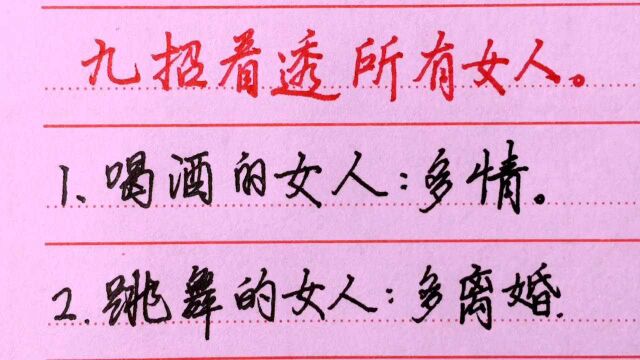 九招看透所有女人。
1.喝酒的女人:多情。
2.跳舞的女人:多离婚.